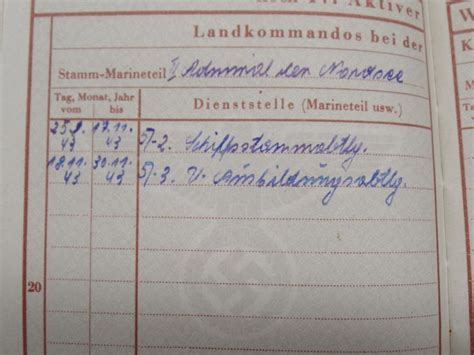 noch IV. Aktiver
Landkommandos bei der
Stamm-Marineteil II/ Admiral der Nordsee
Tag, Monat, Jahr
vom bis
Dienststelle (Marineteil usw.)
43 17.11. 43 5/-2. Schiffsstammabtlg.
18.11. 43 30.11. 43 5/-3. U-Ausbildungsabtlg.
20